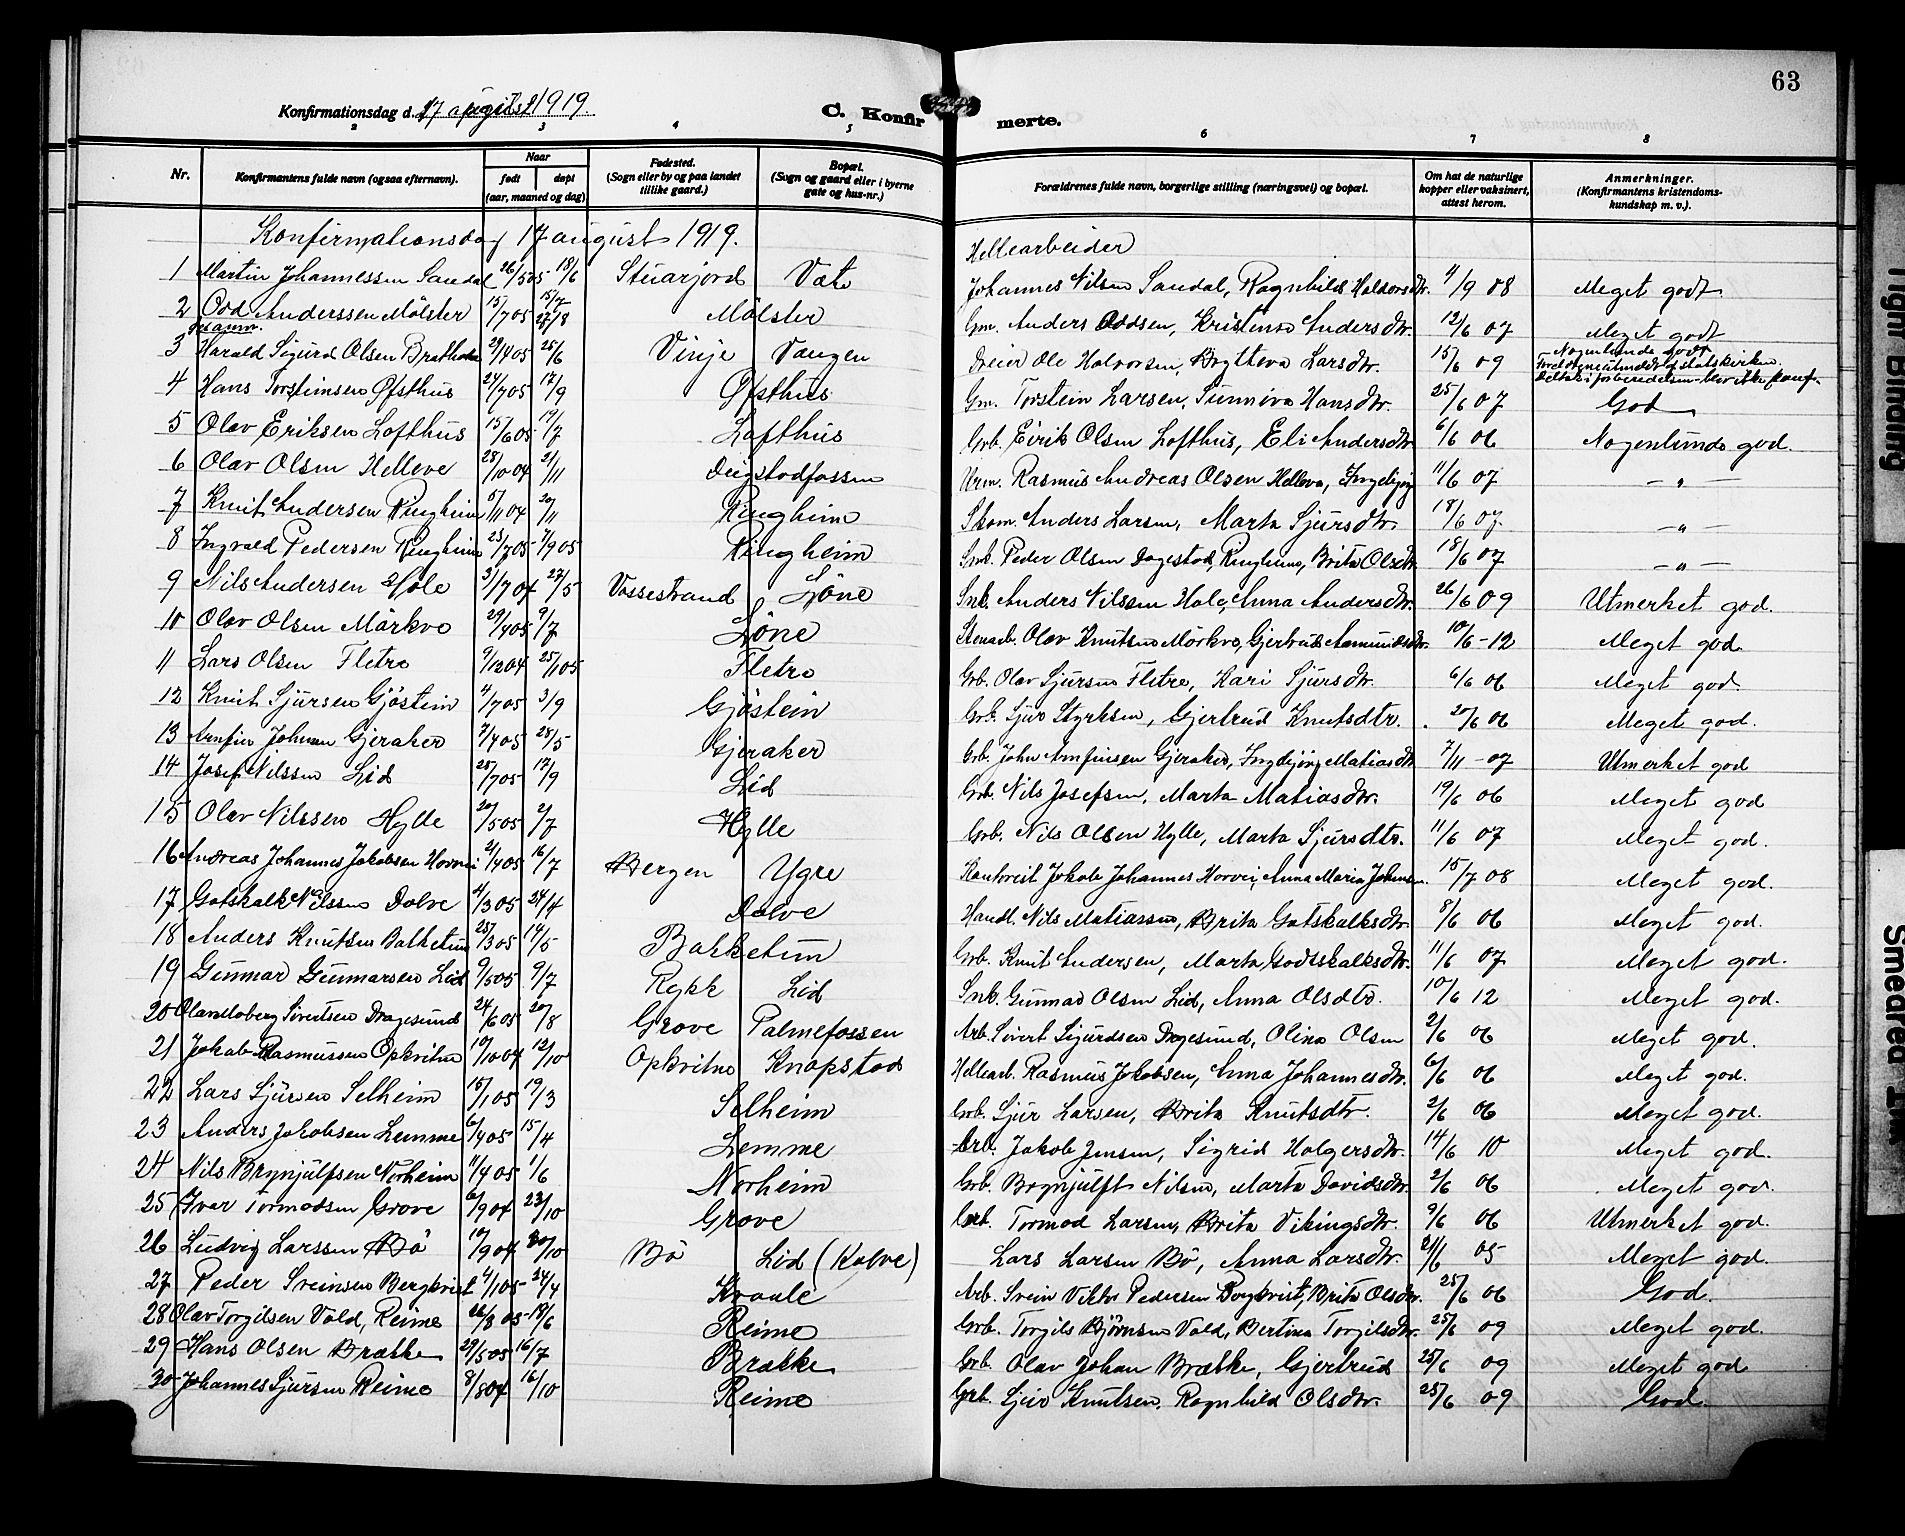 63
Konfirmationsdag d. 17 august 1919.
C. Konfirmerte.
2 3 4 5 6 7 8
Nr. Konfirmantens fulde navn (ogsaa efternavn). Naar født døpt (aar, maaned og dag) Fødested. (Sogn eller by og paa landet tillike gaard.) Bopæl. (Sogn og gaard eller i byerne gate og hus-nr.) Forældrenes fulde navn, borgerlige stilling (næringsvei) og bopæl. Om hat de naturlige kopper eller vaksinert, attest herom. Anmerkninger. (Konfirmantens kristendoms-kundskap m. v.).
Konfirmationsdag 17 august 1919.
Hellearbeider
1 Martin Johannessen Sandal 26/5 05 18/6 Væte Johannes Nilsen Sandal, Ragnhild Haldorsdtr. 4/9 08 Meget godt
2 Odd Anderssen Mölster 15/7 05 27/8 Mölster Gm. Anders Oddsen, Kristense Andersdtr. 12/6 07 Meget godt
3 Harald Sigurd Olsen 29/4 05 25/6 Vinje Vangen Dreier Ole Halvorsen, Brytteva Larsdtr. 15/6 09 Nogenlunde godt
Forældrene utmeldt af statskirken.
Deltok i forberedelsen - blev ikke konf.
4 Hans Torsteinsen Øfsthus 24/7 05 17/9 Øfsthus Gm. Torstein Larsen, Sunniva Hansdtr. 25/6 07 God
5 Olav Eriksen Lofthus 15/6 05 19/7 Lofthus Grb. Eirik Olsen Lofthus, Eli Andersdtr. 6/6 06 Nogenlunde god.
6 Olav Olsen Helleve 28/10 04 21/11 Urm. Rasmus Andreas Olsen Helleve, Ingebjørg 11/6 07 - " -
7 Knut Andersen Ringheim 5/11 04 20/11 Ringheim Skom. Anders Larsen, Marta Sjursdtr. 18/6 07 - " -
8 Ingvald Pedersen Ringheim 23/7 05 7/9 05 Ringheim Snk. Peder Olsen Dagestad, Ringheim, Brita Olsdtr. 18/6 07 - " -
9 Nils Andersen Hole 31/7 04 27/5 Vossestrand Löne Snk. Anders Nilssen Hole, Anna Andersdtr. 26/6 09 Utmerket god.
10 Olav Olsen Mörkve 29/4 05 9/7 Löne Stenarb. Olav Knutsen Mörkve, Gjertrud Aamundsdtr. 10/6 - 12 Meget god.
11 Lars Olsen Fletre 9/12 04 25/1 05 Fletre Grb. Olav Sjursen Fletre, Kari Sjursdtr. 6/6 06 Meget god.
12 Knut Sjursen Gjöstein 4/7 05 3/9 Gjöstein Grb. Sjur Styrksen, Gjertrud Knutsdtr. 20/6 06 Meget god.
13 Arnfin Johnsen Gjeraker 7/4 05 28/5 Gjeraker Grb. John Arnfinsen Gjeraker, Ingebjörg Matiasdtr 7/11 - 07 Utmerket god
14 Josef Nilssen Lid 25/7 05 17/9 Lid Grb. Nils Josefsen, Marta Matiasdtr. 19/6 06 Meget god
15 Olav Nilssen Hylle 20/5 05 2/7 Hylle Grb. Nils Olsen Hylle, Marta Sjursdtr. 11/6 07 Meget god.
16 Andreas Johannes Jakobsen Horvei 21/4 05 16/7 Bergen Ygre Jakob Johannes Horvei, Anna Maria Johnsen. 15/7 08 Meget god.
17 Gotskalk Nilssen Dolve 4/3 05 24/4 Dolve Handl. Nils Matiassen, Brita Gotskalksdtr. 8/6 06 Meget god.
18 Anders Knutsen Bakketun 25/3 05 14/5 Bakketun Grb. Knut Andersen, Marta Godsskalksdtr. 11/6 07 Meget god.
19 Gunnar Gunnarsen Lid 9/5 05 9/7 Rykk Lid Snk. Gunnar Olsen Lid, Anna Olsdtr. 10/6 12 Meget god.
20 Sivertsen Dragesund 24/6 05 20/8 Grove Palmefossen Arb. Sivert Sigurdsen Dragesund, Olina Olsen 2/6 06 Meget god.
21 Jakob Rasmussen Opkvitne 10/10 04 12/10 Opkvitne Knapstad Hellearb. Rasmus Jakobsen, Anna Johannesdtr. 6/6 06 Meget god.
22 Lars Sjursen Selheim 15/1 05 19/3 Selheim Grb. Sjur Larsen, Brita Knutsdtr. 2/6 06 Meget god.
23 Anders Jakobsen Lemme 6/4 05 15/4 Lemme Arb. Jakob Jensen, Sigrid Holgersdtr. 14/6 10 Meget god.
24 Nils Brynjulfsen Norheim 11/4 05 1/6 Norheim Grb. Brynjulft Nilsen, Marta Davidsdtr. 2/6 06 Meget god.
25 Ivar Tormodsen Grove 6/9 04 23/10 Grove Grb. Tormod Larsen, Brita Vikingsdtr. 9/6 06 Utmerket god.
26 Ludvig Larssen Bö 19/9 04 30/10 Bö Lid (Kolve) Lars Larsen Bö, Anna Larsdtr. 21/6 05 Meget god.
27 Peder Sveinsen Bergkvist 4/1 05 24/4 Kvaale Arb. Svein Viktor Pedersen Bergkvist, Brita Olsdtr. 25/6 06 God.
28 Olav Torgilsen Vold, Reime 26/3 05 18/6 Reime Grb. Torgils Björnsen Vold, Bertina Torgilsdtr. 25/6 09 Meget god.
29 Hans Olsen Brække 29/5 05 16/7 Brække Grb. Olav Johan Brække, Gjertrud 25/6 09 Meget god
30 Johannes Sjursen Reime 8/8 04 16/10 Reime Grb. Sjur Knutsen, Ragnhild Olsdtr. 25/6 09 God.
Tight Binding
Smeared Ink